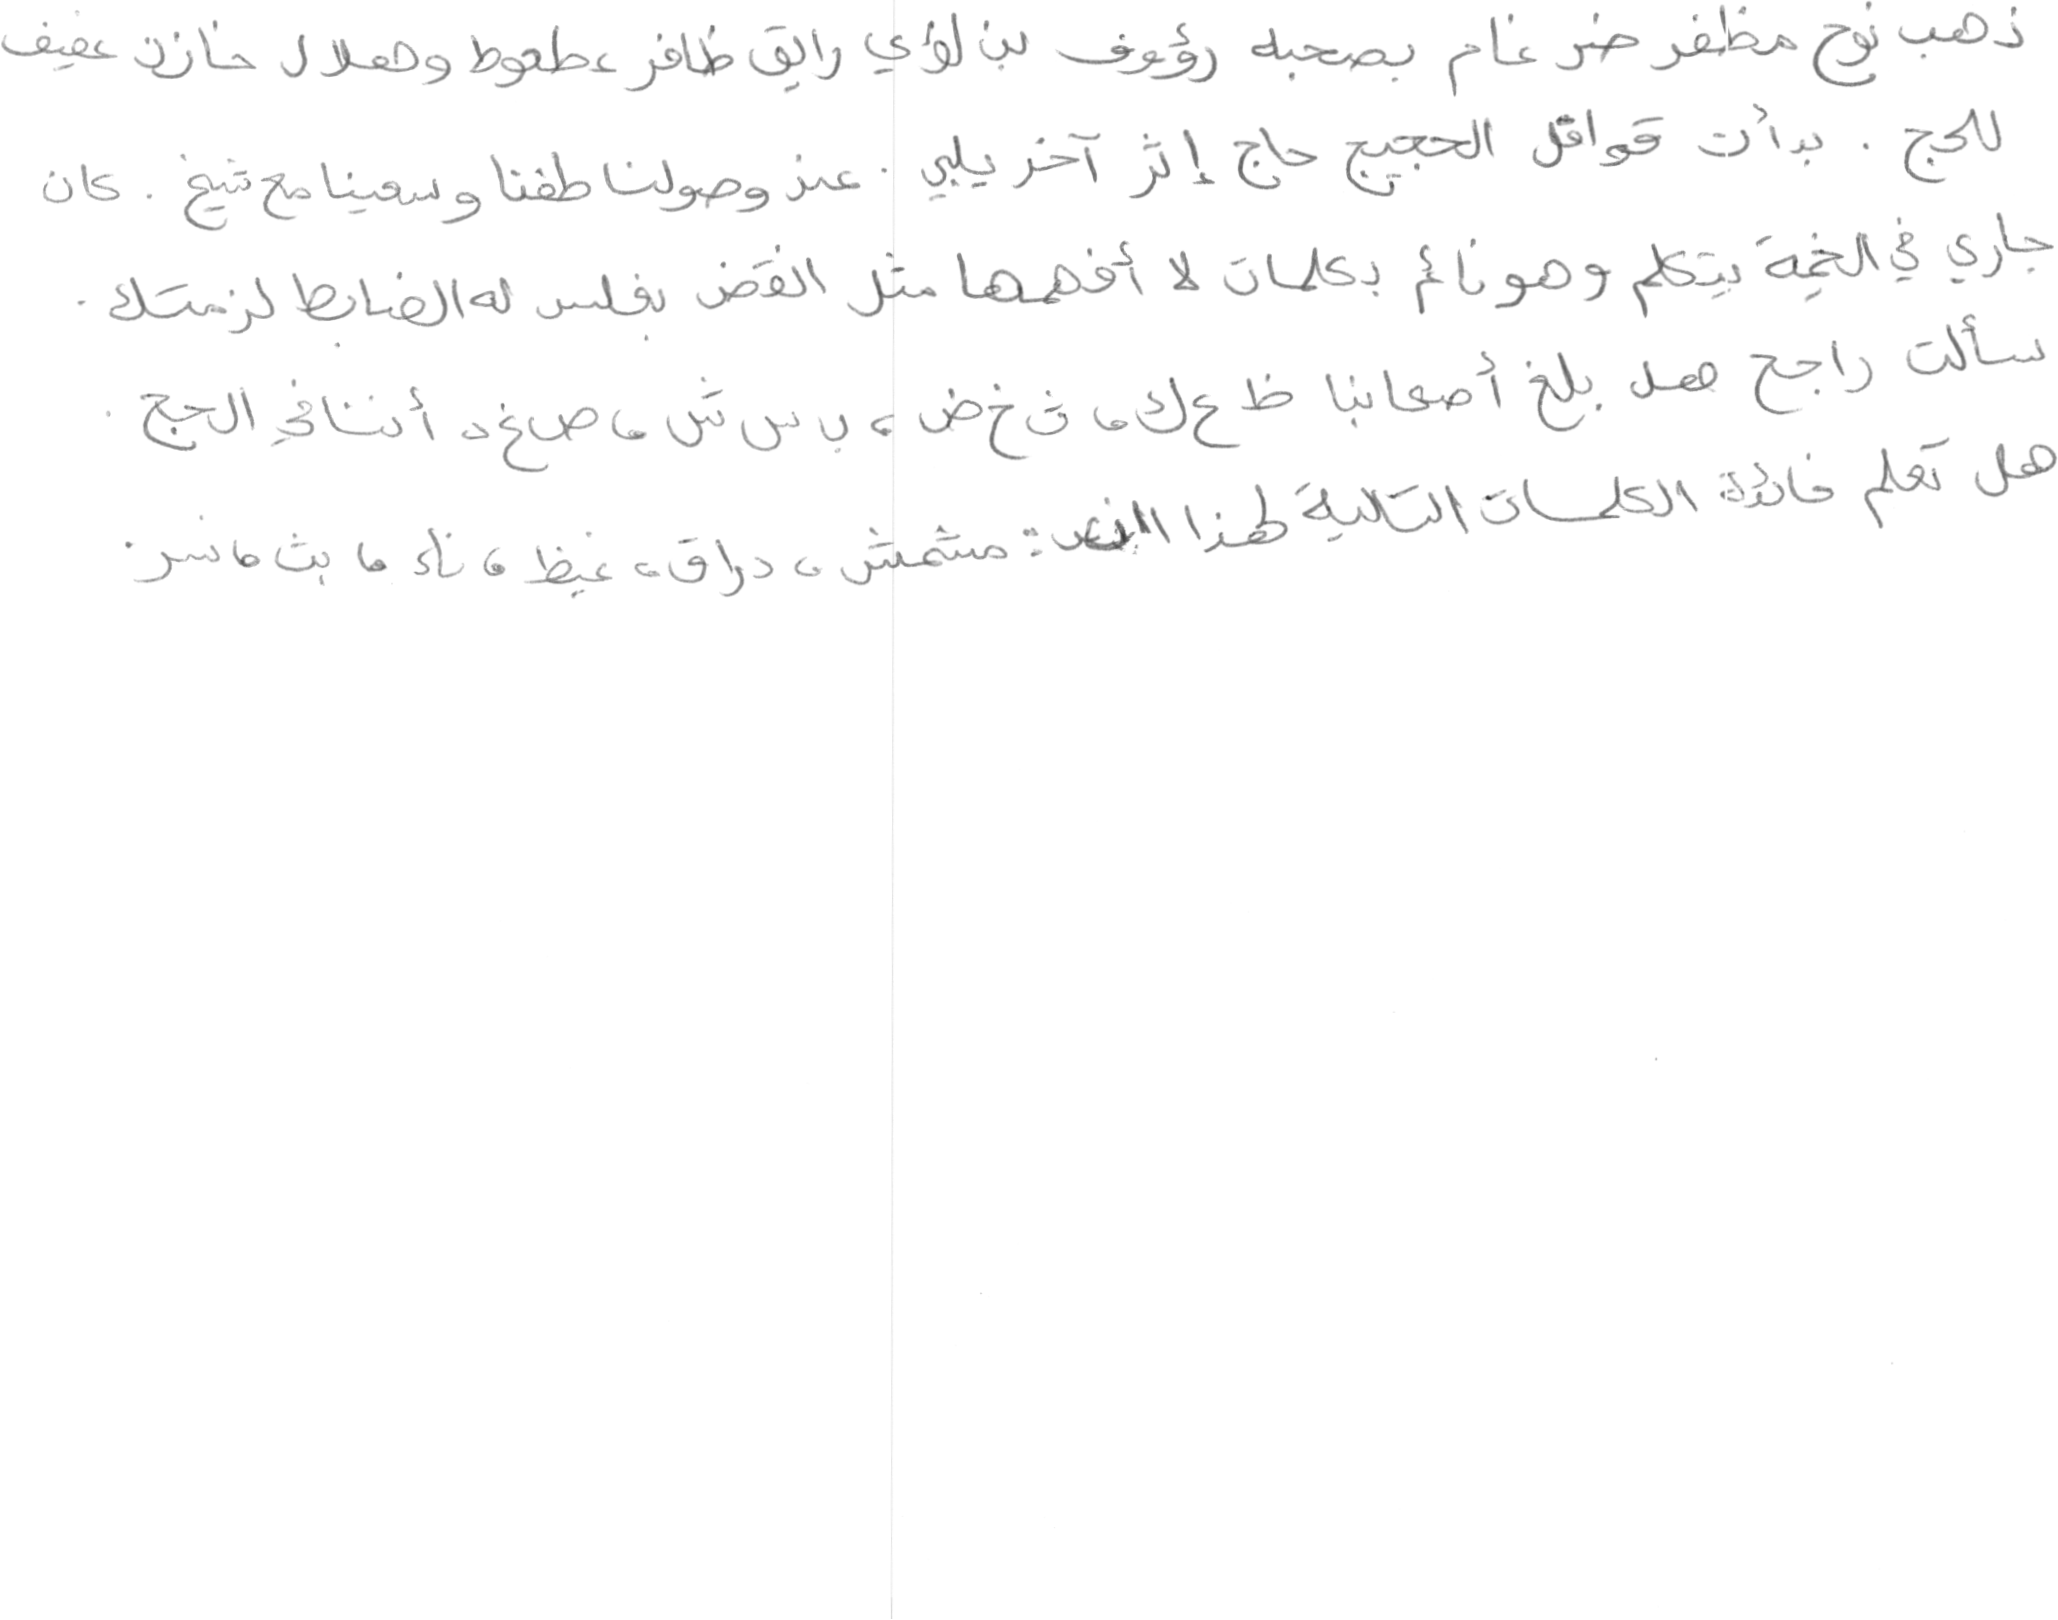 ذهب نوح مظفر ضرغام بصحبه رؤوف بن لؤي رايق ظافر عطعوط وهلال خازن عفيف
للحج . بدأت قوافل الحجيج حاج إثر آخر يلبي . عند وصولنا طفنا وسعينا مع شيخ . كان
جاري في الخيمة يتكلم وهو نائم بكلمات لا أفهمها مثل الفض بفلس له الضابط لزمتك .
سألت راجح هل بلغ أصحابنا ظ ع ك ، ث خ ض ، ب س ش ، ص غ د أننا في الحج .
هل تعلم فائدة الكلمات التالية لهذا النص : مشمش ، دراق ، غيظ ، ناء ، بث ، نسر .